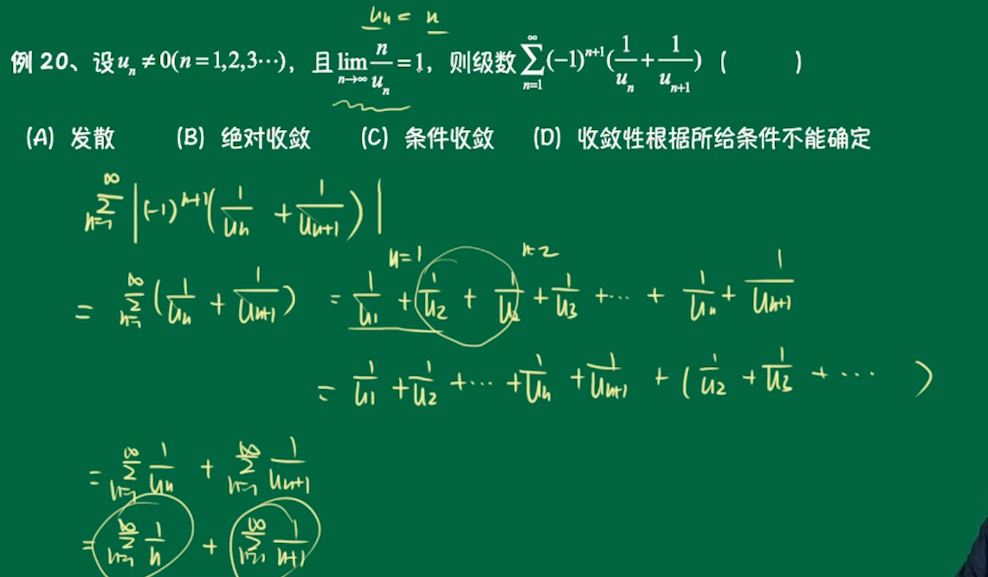 uₙ = n
例 20、设uₙ ≠ 0(n = 1,2,3⋯)，且lim_{n→∞} n/uₙ = 1，则级数∑_{n=1}^{∞}(-1)^{n+1}(1/uₙ + 1/u_{n+1})（　　）
(A) 发散 (B) 绝对收敛 (C) 条件收敛 (D) 收敛性根据所给条件不能确定
∑_{n=1}^{∞} |(-1)^{n+1}(1/uₙ + 1/u_{n+1})|
n=1 n=2
= ∑_{n=1}^{∞}(1/uₙ + 1/u_{n+1}) = 1/u₁ + 1/u₂ + 1/u₂ + 1/u₃ + ⋯ + 1/uₙ + 1/u_{n+1}
= 1/u₁ + 1/u₂ + ⋯ + 1/uₙ + 1/u_{n+1} + (1/u₂ + 1/u₃ + ⋯ )
= ∑_{n=1}^{∞} 1/uₙ + ∑_{n=1}^{∞} 1/u_{n+1}
= ∑_{n=1}^{∞} 1/n + ∑_{n=1}^{∞} 1/n+1